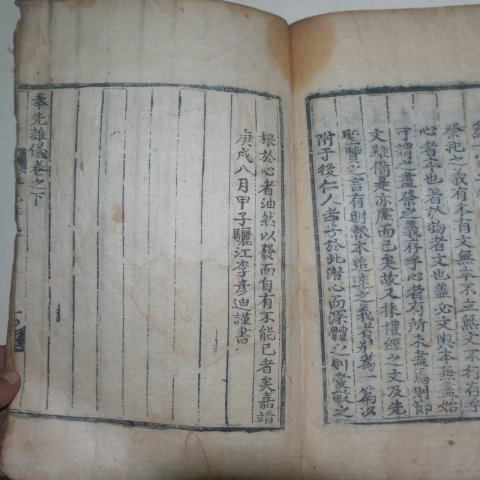 祭祀之義有本有文無本不立無文不行存乎
心者本也著於物者文也盖必文與本兼盡始
可謂之盡祭之義存乎心者有所未盡焉則節
文雖備是亦虛而已矣故又採禮經之文及先
聖賢之言有明報本追遠之義者別爲一篇以
附于後仁人孝子於此潛心而深體之則愛敬之
根於心者油然以發而自有不能已者矣嘉靖
庚戌八月甲子驪江李彦迪謹書
奉先雜儀卷之下